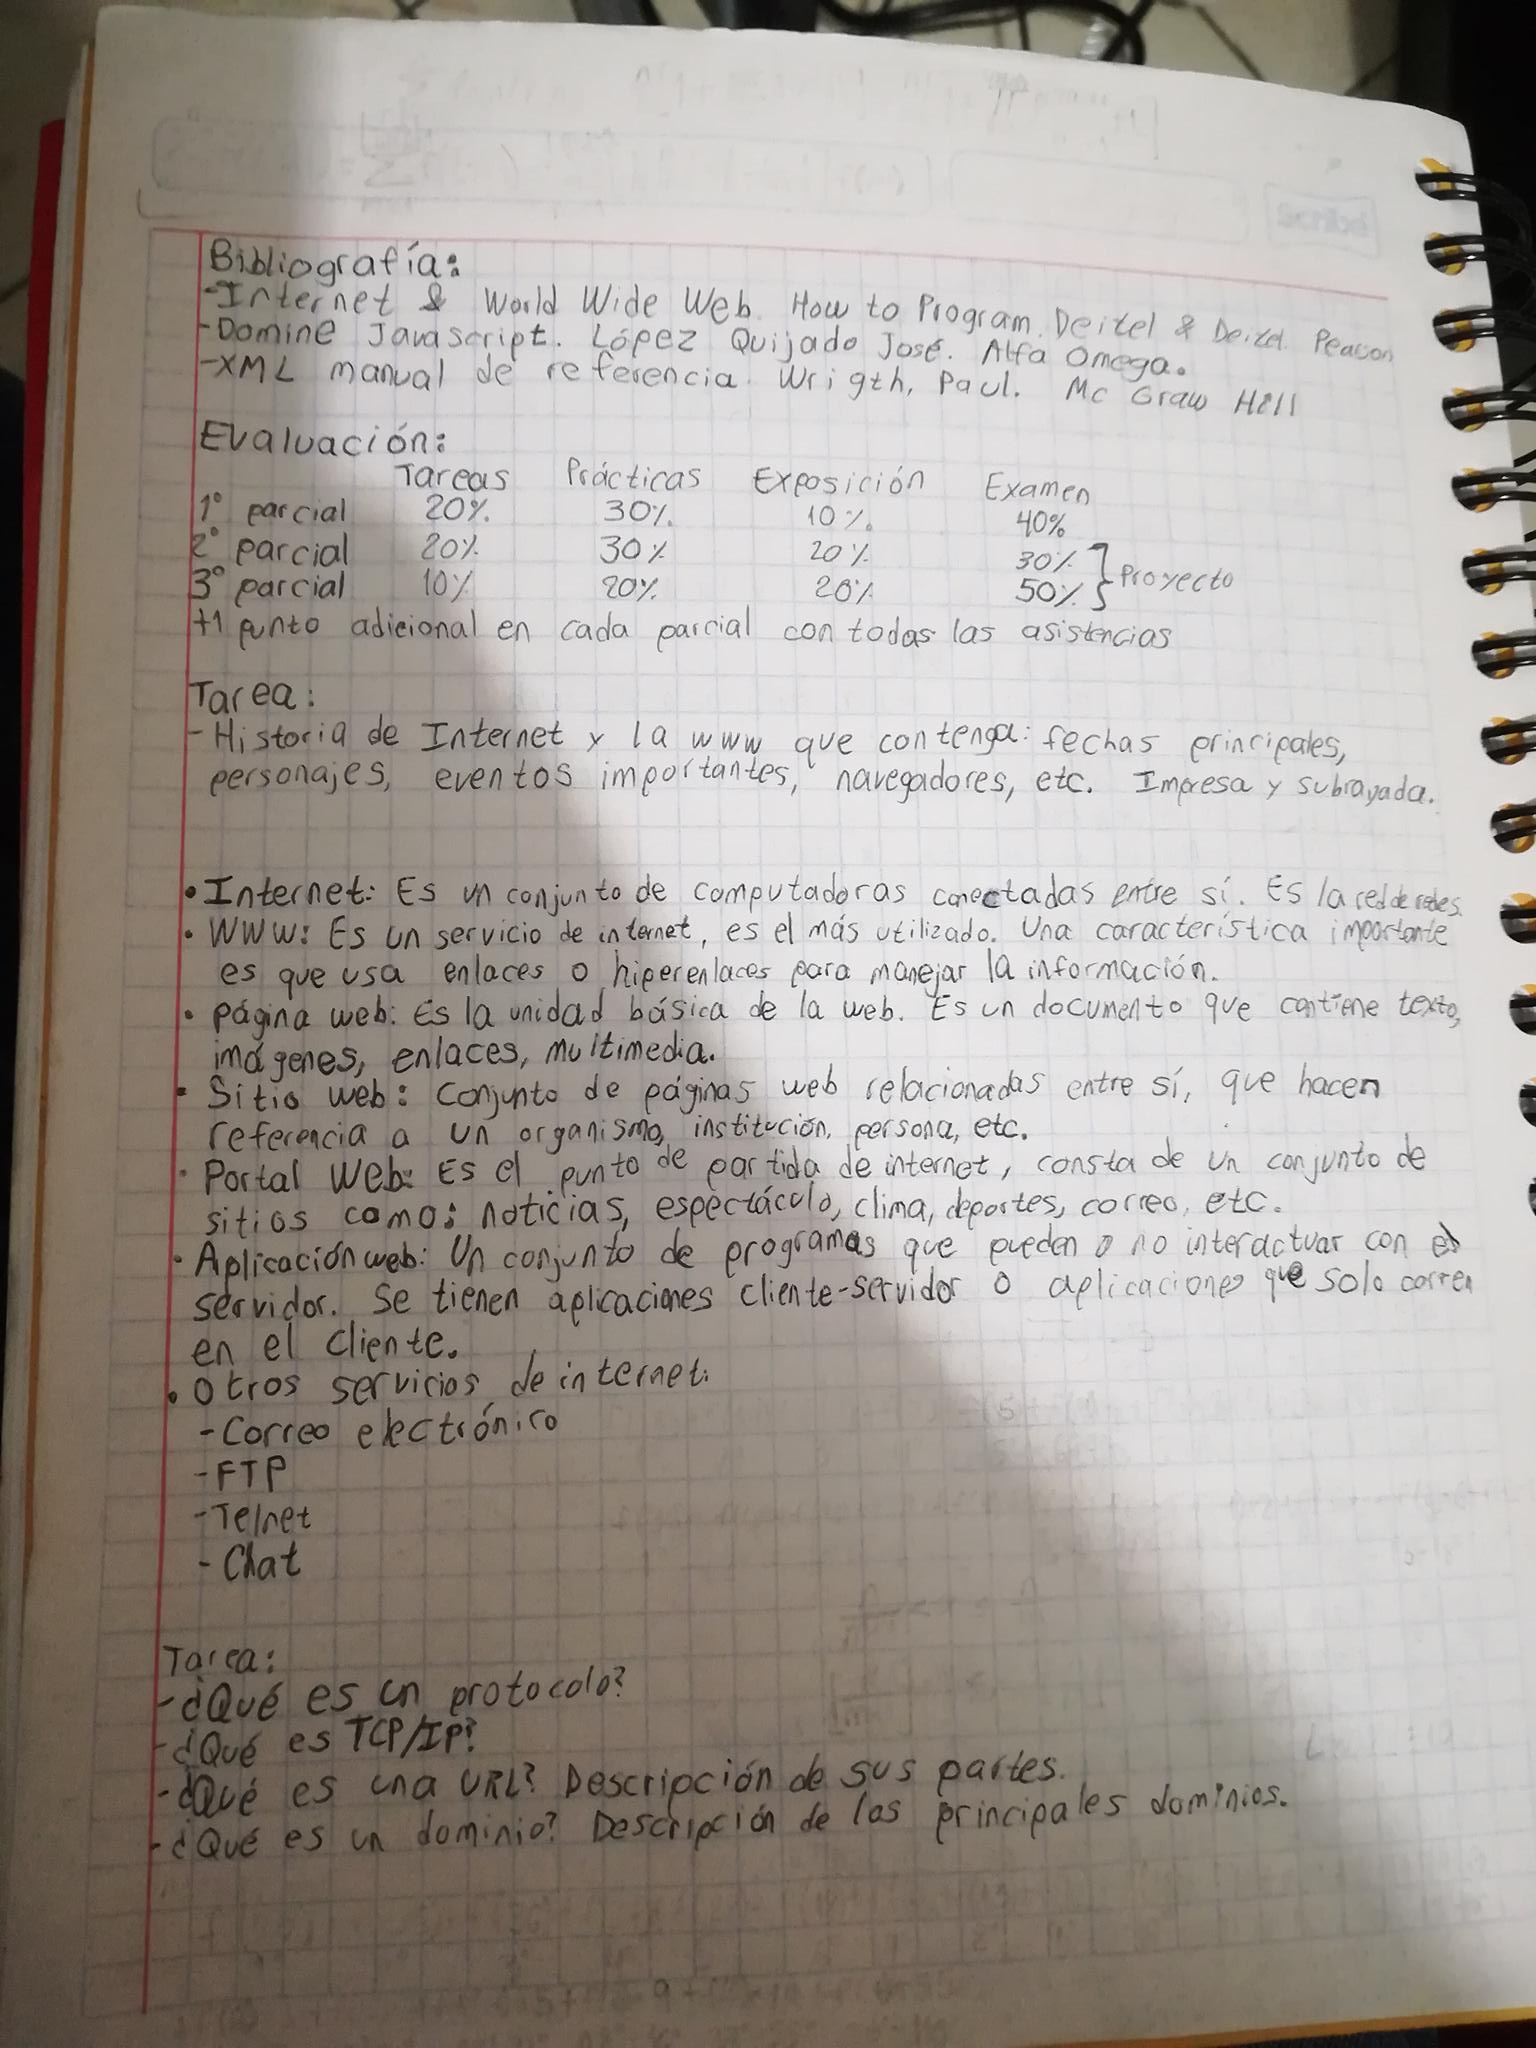 Bibliografía:
-Internet & World Wide Web. How to Program. Deitel & Deitel. Pearson
-Domine Javascript. López Quijado José. Alfa Omega.
-XML manual de referencia. Wrigth, Paul. Mc Graw Hill
Evaluación:
Tareas Prácticas Exposición Examen
1° parcial 20% 30% 10% 40%
2° parcial 20% 30% 20% 30%
3° parcial 10% 20% 20% 50% } Proyecto
+1 punto adicional en cada parcial con todas las asistencias
Tarea:
-Historia de Internet y la www que contenga: fechas principales,
personajes, eventos importantes, navegadores, etc. Impresa y subrayada.
• Internet: Es un conjunto de computadoras conectadas entre sí. Es la red de redes.
• WWW: Es un servicio de internet, es el más utilizado. Una característica importante
es que usa enlaces o hiperenlaces para manejar la información.
• página web: Es la unidad básica de la web. Es un documento que contiene texto,
imágenes, enlaces, multimedia.
• Sitio web: Conjunto de páginas web relacionadas entre sí, que hacen
referencia a un organismo, institución, persona, etc.
• Portal Web: Es el punto de partida de internet, consta de un conjunto de
sitios como: noticias, espectáculo, clima, deportes, correo, etc.
• Aplicación web: Un conjunto de programas que pueden o no interactuar con el
servidor. Se tienen aplicaciones cliente-servidor o aplicaciones que solo corren
en el cliente.
• Otros servicios de internet:
-Correo electrónico
-FTP
-Telnet
-Chat
Tarea:
-¿Qué es un protocolo?
-¿Qué es TCP/IP?
-¿Qué es una URL? Descripción de sus partes.
-¿Qué es un dominio? Descripción de los principales dominios.